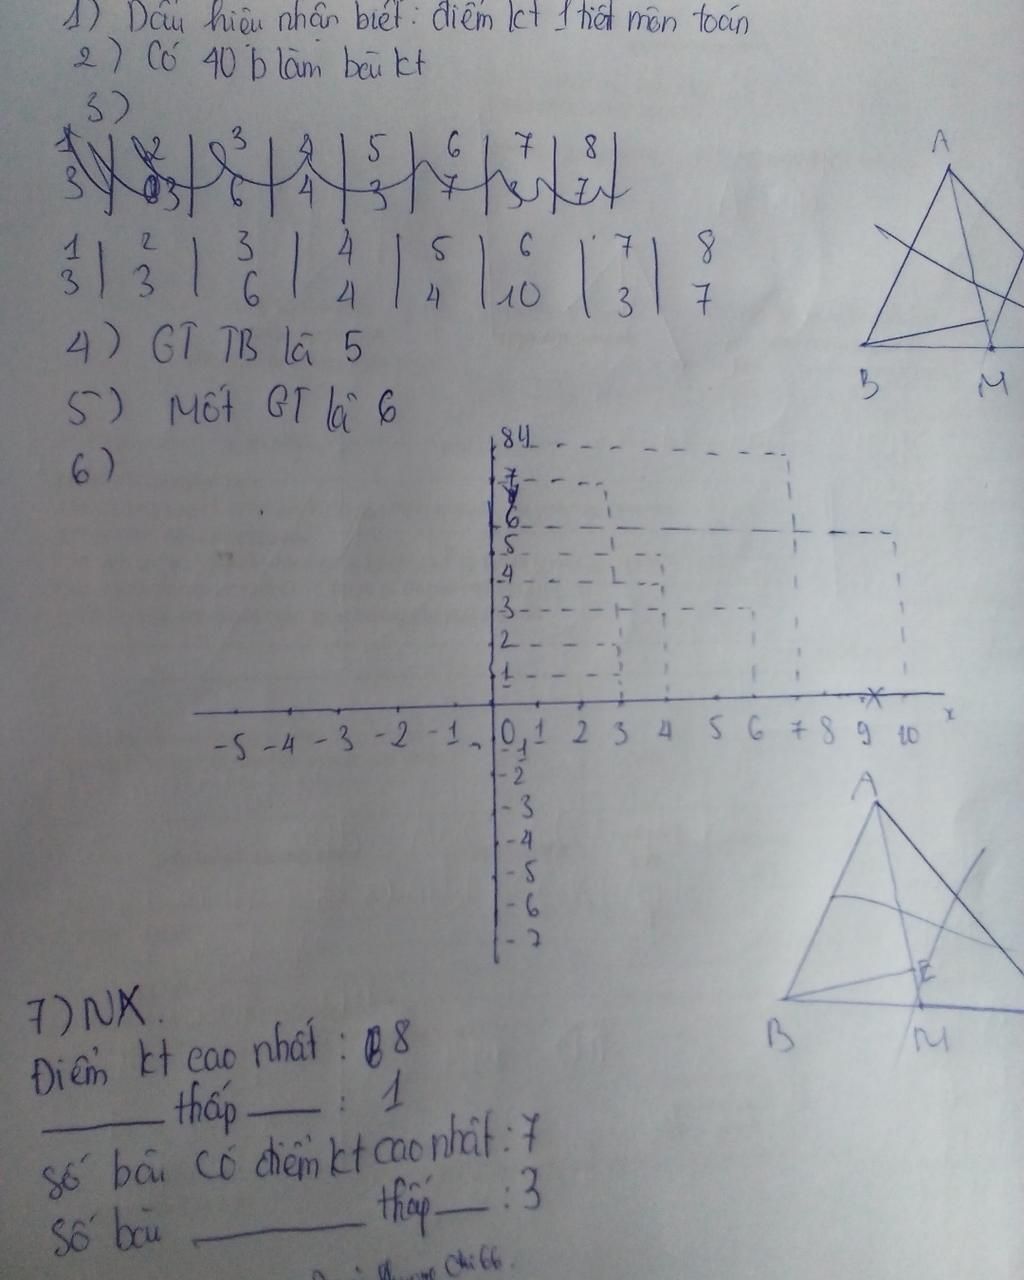 1) Dấu hiệu nhân biết: điểm kt 1 tiết môn toán
2) Có 40 b làm bài kt
3)
1 | 2 | 3 | 4 | 5 | 6 | 7 | 8 |
3 | 3 | 6 | 4 | 3 | 7 | 3 | 7 |
1 | 2 | 3 | 4 | 5 | 6 | 7 | 8
3 | 3 | 6 | 4 | 4 | 10 | 3 | 7
A
B M
4) GT TB là 5
5) Mốt GT là 6
6)
8 y
7
6
5
4
3
2
1
-5 -4 -3 -2 -1 0 1 2 3 4 5 6 7 8 9 10 x
-1
-2
-3
-4
-5
-6
-7
A
E
B M
7) NX.
Điểm kt cao nhất : 8
_____ thấp ___ : 1
số bài có điểm kt cao nhất : 7
số bài _____ thấp ___ : 3